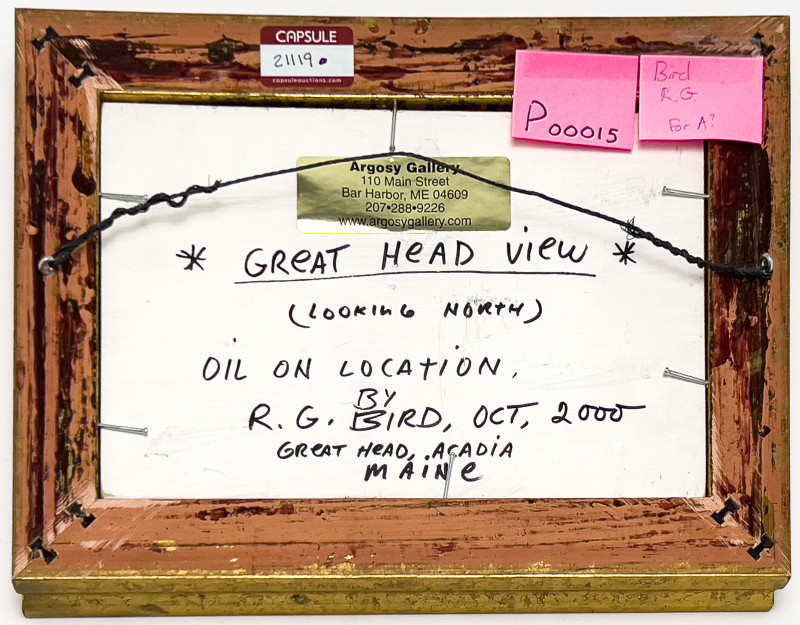 CAPSULE
21119
capsuleauctions.com
P00015
Bird
R.G.
For A?
Argosy Gallery
110 Main Street
Bar Harbor, ME 04609
207•288•9226
www.argosygallery.com
* GREAT HEAD VIEW *
(LOOKING NORTH)
OIL ON LOCATION,
BY
R. G. BIRD, OCT, 2000
GREAT HEAD, ACADIA
MAINE